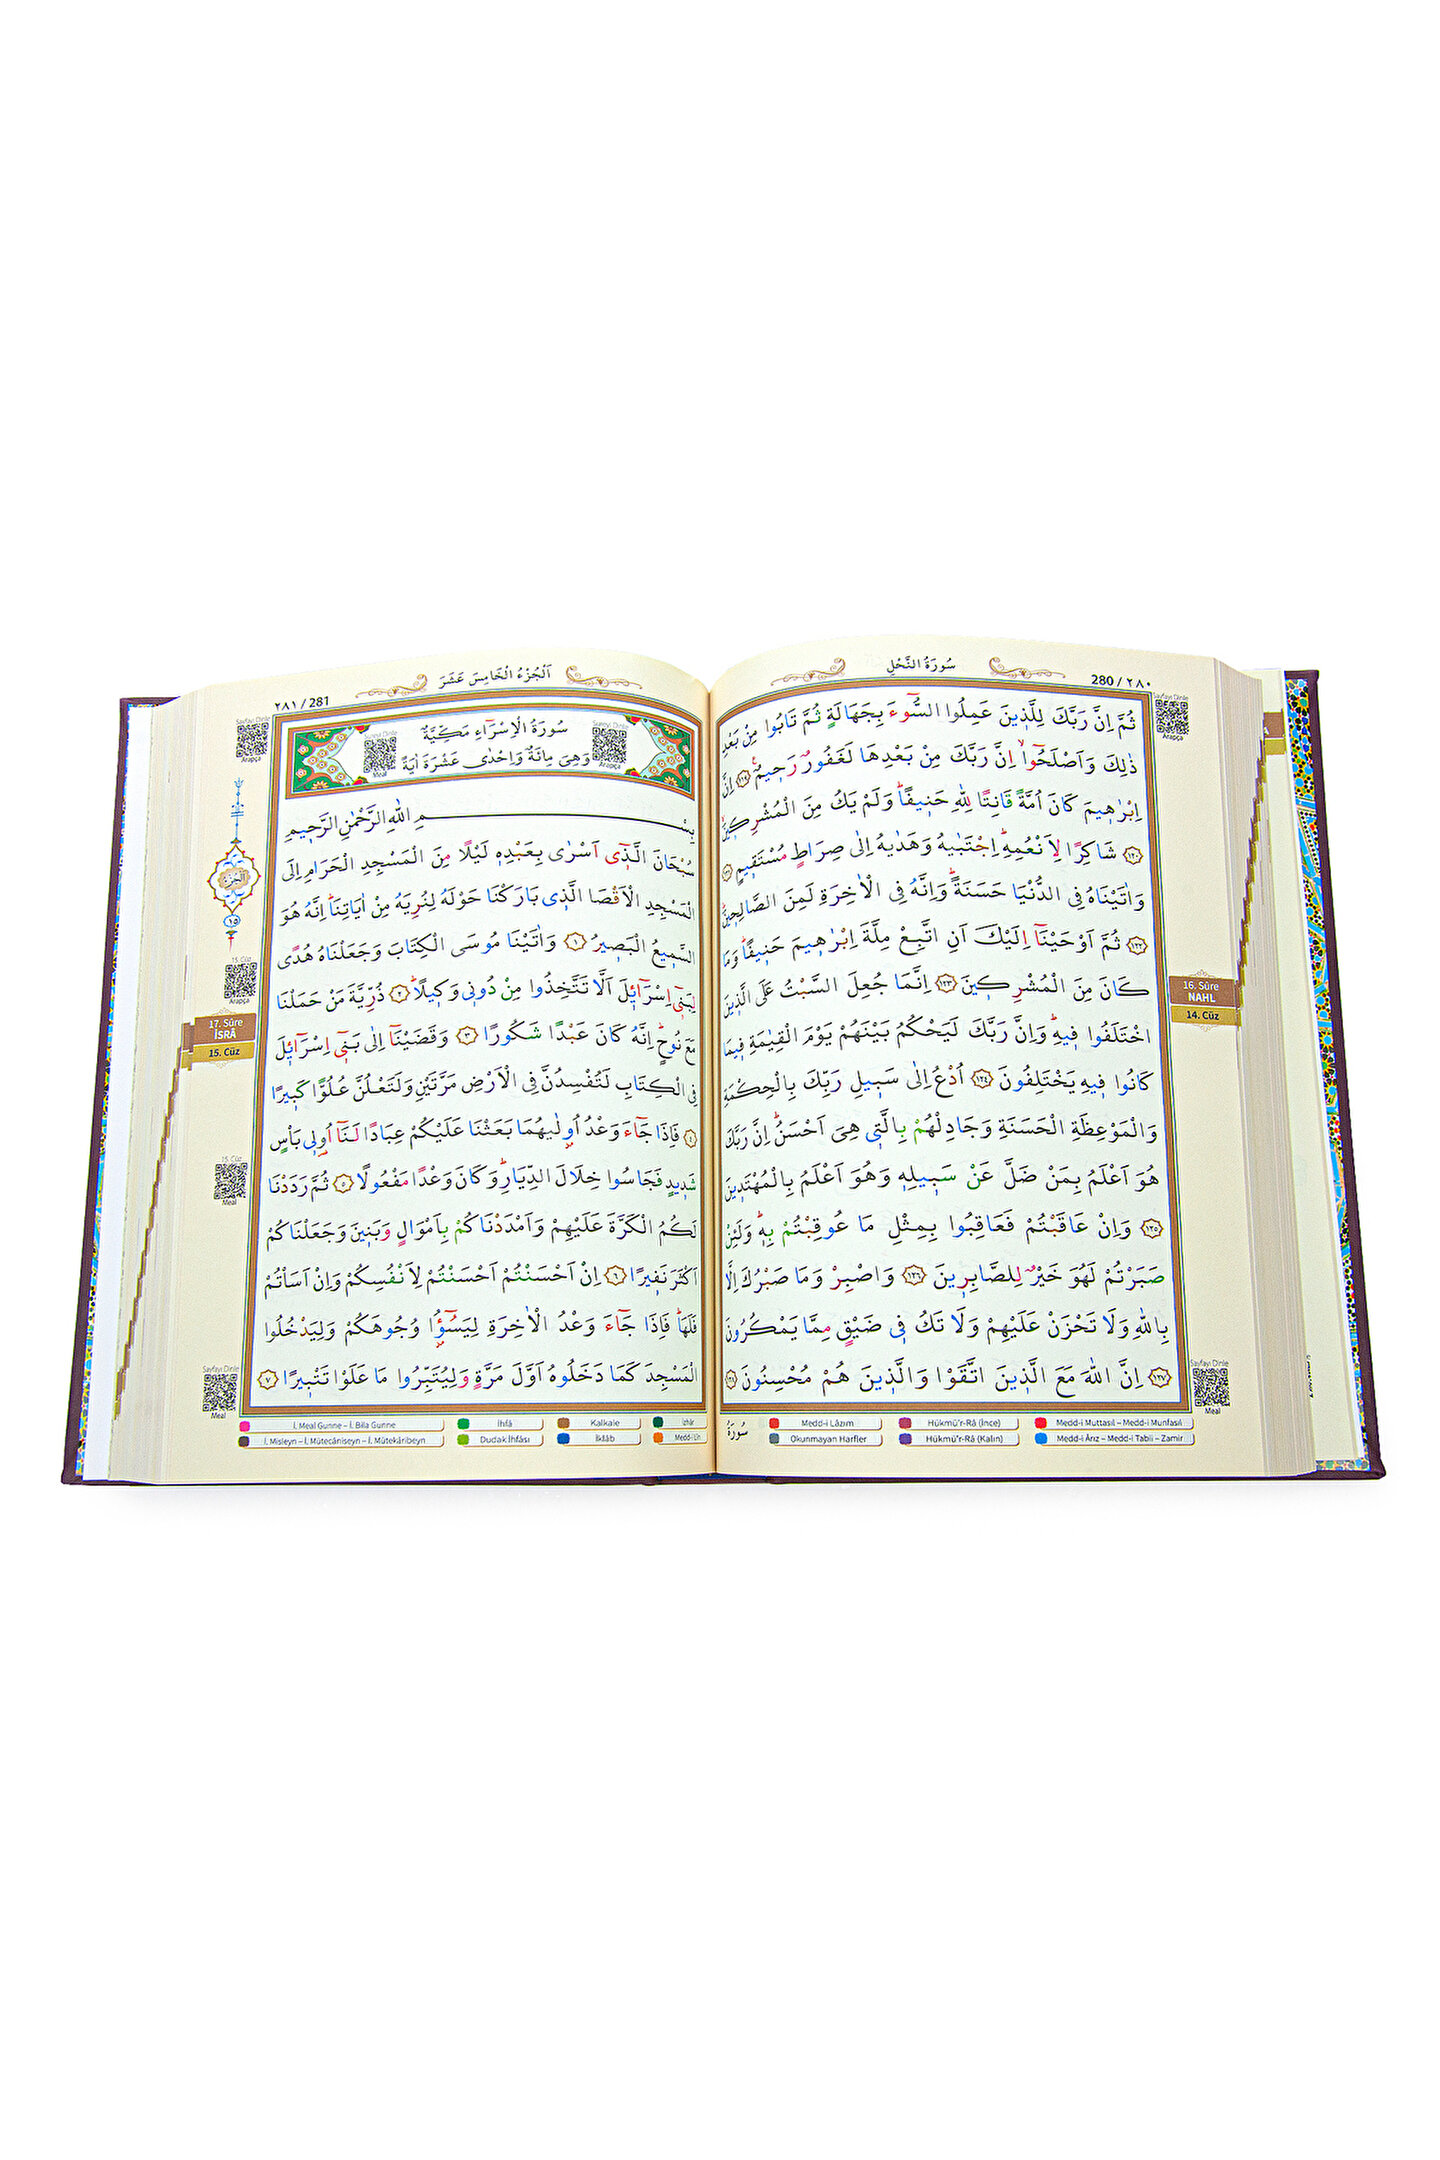 سُورَةُ النَّحْلِ
280 / ٢٨٠
ثُمَّ اِنَّ رَبَّكَ لِلَّذ۪ينَ عَمِلُوا السُّٓوءَ بِجَهَالَةٍ ثُمَّ تَابُوا مِنْ بَعْدِ
ذٰلِكَ وَاَصْلَحُٓوا اِنَّ رَبَّكَ مِنْ بَعْدِهَا لَغَفُورٌ رَح۪يمٌ ﴿١١٩﴾ اِنَّ
اِبْرٰه۪يمَ كَانَ اُمَّةً قَانِتًا لِلّٰهِ حَن۪يفًاۜ وَلَمْ يَكُ مِنَ الْمُشْرِك۪ينَۙ
﴿١٢٠﴾ شَاكِرًا لِاَنْعُمِهِۜ اِجْتَبٰيهُ وَهَدٰيهُ اِلٰى صِرَاطٍ مُسْتَق۪يمٍ ﴿١٢١﴾
وَاٰتَيْنَاهُ فِي الدُّنْيَا حَسَنَةًۜ وَاِنَّهُ فِي الْاٰخِرَةِ لَمِنَ الصَّالِح۪ينَۜ
﴿١٢٢﴾ ثُمَّ اَوْحَيْنَٓا اِلَيْكَ اَنِ اتَّبِعْ مِلَّةَ اِبْرٰه۪يمَ حَن۪يفًاۜ وَمَا
كَانَ مِنَ الْمُشْرِك۪ينَ ﴿١٢٣﴾ اِنَّمَا جُعِلَ السَّبْتُ عَلَى الَّذ۪ينَ
اخْتَلَفُوا ف۪يهِۜ وَاِنَّ رَبَّكَ لَيَحْكُمُ بَيْنَهُمْ يَوْمَ الْقِيٰمَةِ ف۪يمَا
كَانُوا ف۪يهِ يَخْتَلِفُونَ ﴿١٢٤﴾ اُدْعُ اِلٰى سَب۪يلِ رَبِّكَ بِالْحِكْمَةِ
وَالْمَوْعِظَةِ الْحَسَنَةِ وَجَادِلْهُمْ بِالَّت۪ي هِيَ اَحْسَنُۜ اِنَّ رَبَّكَ
هُوَ اَعْلَمُ بِمَنْ ضَلَّ عَنْ سَب۪يلِه۪ وَهُوَ اَعْلَمُ بِالْمُهْتَد۪ينَ
﴿١٢٥﴾ وَاِنْ عَاقَبْتُمْ فَعَاقِبُوا بِمِثْلِ مَا عُوقِبْتُمْ بِه۪ۜ وَلَئِنْ
صَبَرْتُمْ لَهُوَ خَيْرٌ لِلصَّابِر۪ينَ ﴿١٢٦﴾ وَاصْبِرْ وَمَا صَبْرُكَ اِلَّا
بِاللّٰهِ وَلَا تَحْزَنْ عَلَيْهِمْ وَلَا تَكُ ف۪ي ضَيْقٍ مِمَّا يَمْكُرُونَ
﴿١٢٧﴾ اِنَّ اللّٰهَ مَعَ الَّذ۪ينَ اتَّقَوْا وَالَّذ۪ينَ هُمْ مُحْسِنُونَ ﴿١٢٨﴾
Sayfayı Dinle
Arapça
16. Sûre
NAHL
14. Cüz
Sayfayı Dinle
Meal
سُورَةُ
Medd-i Lâzım
Hükmü'r-Râ (İnce)
Medd-i Muttasıl – Medd-i Munfasıl
Okunmayan Harfler
Hükmü'r-Râ (Kalın)
Medd-i Ârız – Medd-i Tabii – Zamir
اَلْجُزْءُ الْخَامِسَ عَشَرَ
٢٨١ / 281
سُورَةُ الْاِسْرَٓاءِ مَكِّيَّةٌ
وَهِيَ مِائَةٌ وَاِحْدٰى عَشْرَةَ اٰيَةً
Sureyi Dinle
Arapça
Sureyi Dinle
Meal
بِسْمِ اللّٰهِ الرَّحْمٰنِ الرَّح۪يمِ
سُبْحَانَ الَّذ۪ٓي اَسْرٰى بِعَبْدِه۪ لَيْلًا مِنَ الْمَسْجِدِ الْحَرَامِ اِلَى
الْمَسْجِدِ الْاَقْصَا الَّذ۪ي بَارَكْنَا حَوْلَهُ لِنُرِيَهُ مِنْ اٰيَاتِنَاۜ اِنَّهُ هُوَ
السَّم۪يعُ الْبَص۪يرُ ﴿١﴾ وَاٰتَيْنَا مُوسَى الْكِتَابَ وَجَعَلْنَاهُ هُدًى
لِبَن۪ٓي اِسْرَٓائ۪لَ اَلَّا تَتَّخِذُوا مِنْ دُون۪ي وَك۪يلًاۜ ﴿٢﴾ ذُرِّيَّةَ مَنْ حَمَلْنَا
مَعَ نُوحٍۜ اِنَّهُ كَانَ عَبْدًا شَكُورًا ﴿٣﴾ وَقَضَيْنَٓا اِلٰى بَن۪ٓي اِسْرَٓائ۪لَ
فِي الْكِتَابِ لَتُفْسِدُنَّ فِي الْاَرْضِ مَرَّتَيْنِ وَلَتَعْلُنَّ عُلُوًّا كَب۪يرًا
﴿٤﴾ فَاِذَا جَٓاءَ وَعْدُ اُو۫لٰيهُمَا بَعَثْنَا عَلَيْكُمْ عِبَادًا لَنَٓا اُو۬ل۪ي بَأْسٍ
شَد۪يدٍ فَجَاسُوا خِلَالَ الدِّيَارِۜ وَكَانَ وَعْدًا مَفْعُولًا ﴿٥﴾ ثُمَّ رَدَدْنَا
لَكُمُ الْكَرَّةَ عَلَيْهِمْ وَاَمْدَدْنَاكُمْ بِاَمْوَالٍ وَبَن۪ينَ وَجَعَلْنَاكُمْ
اَكْثَرَ نَف۪يرًا ﴿٦﴾ اِنْ اَحْسَنْتُمْ اَحْسَنْتُمْ لِاَنْفُسِكُمْ وَاِنْ اَسَأْتُمْ
فَلَهَاۜ فَاِذَا جَٓاءَ وَعْدُ الْاٰخِرَةِ لِيَسُٓؤُ۫ا وُجُوهَكُمْ وَلِيَدْخُلُوا
الْمَسْجِدَ كَمَا دَخَلُوهُ اَوَّلَ مَرَّةٍ وَلِيُتَبِّرُوا مَا عَلَوْا تَتْب۪يرًا ﴿٧﴾
Sayfayı Dinle
Arapça
اَلْجُزْءُ
١٥
15. Cüz
Arapça
17. Sûre
İSRÂ
15. Cüz
15. Cüz
Meal
Sayfayı Dinle
Meal
İ. Meal Gunne – İ. Bila Gunne
İhfâ
Kalkale
İzhâr
İ. Misleyn – İ. Mütecâniseyn – İ. Mütekâribeyn
Dudak İhfâsı
İklâb
Medd-i Lîn